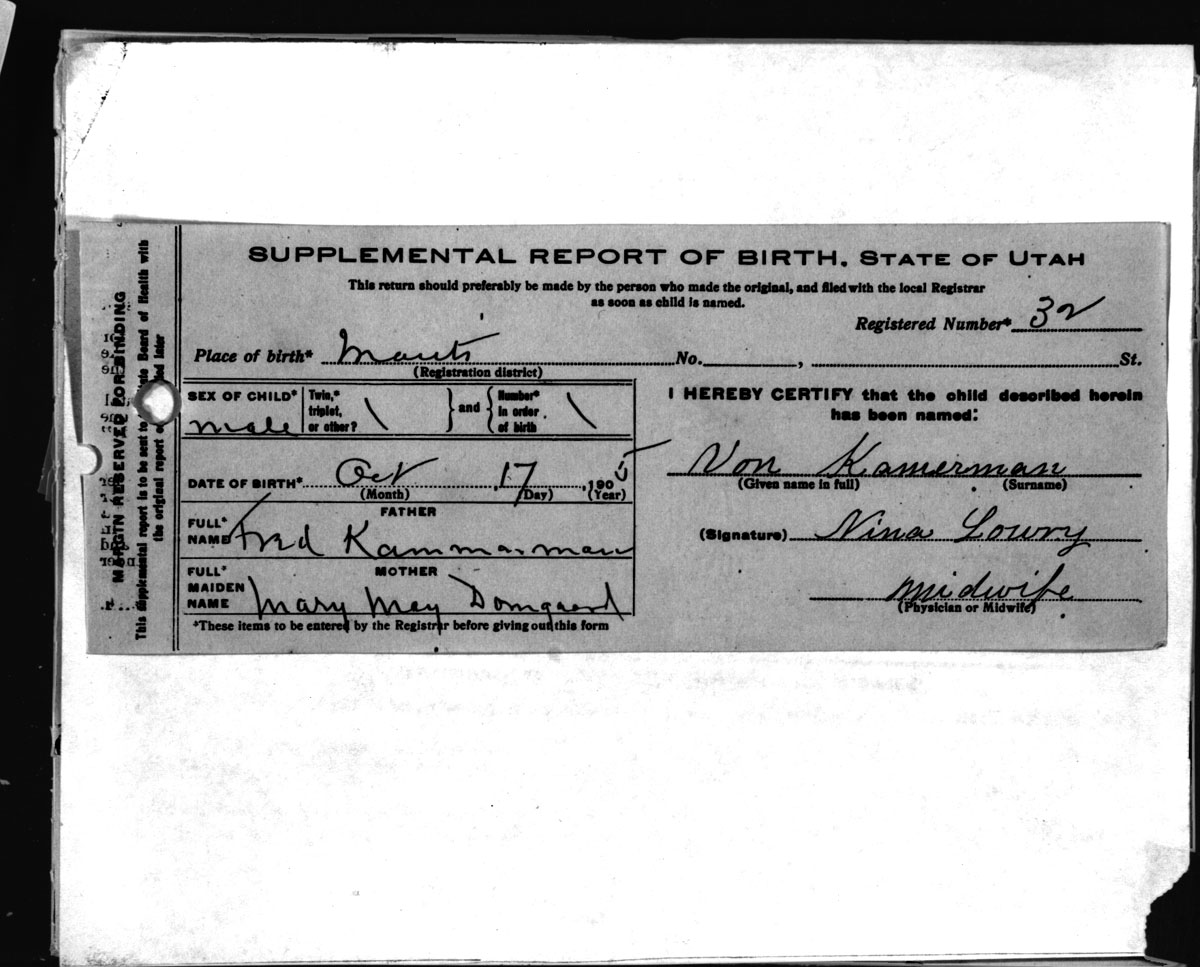 SUPPLEMENTAL REPORT OF BIRTH. STATE OF UTAH
This return should preferably be made by the person who made the original, and filed with the local Registrar
as soon as child is named.
Registered Number* 32
Place of birth* Manti No. , St.
(Registration district)
SEX OF CHILD* male
Twin,* triplet, or other? \ and Number* in order of birth \
DATE OF BIRTH* Oct , 17 , 1905
(Month) (Day) (Year)
FATHER
FULL* NAME Fred Kammarman
MOTHER
FULL* MAIDEN NAME Mary May Domgaard
*These items to be entered by the Registrar before giving out this form
I HEREBY CERTIFY that the child described herein
has been named:
Von Kamerman
(Given name in full) (Surname)
(Signature) Nina Lowry
midwife
(Physician or Midwife)
MARGIN RESERVED FOR BINDING
This supplemental report is to be sent to State Board of Health with
the original report